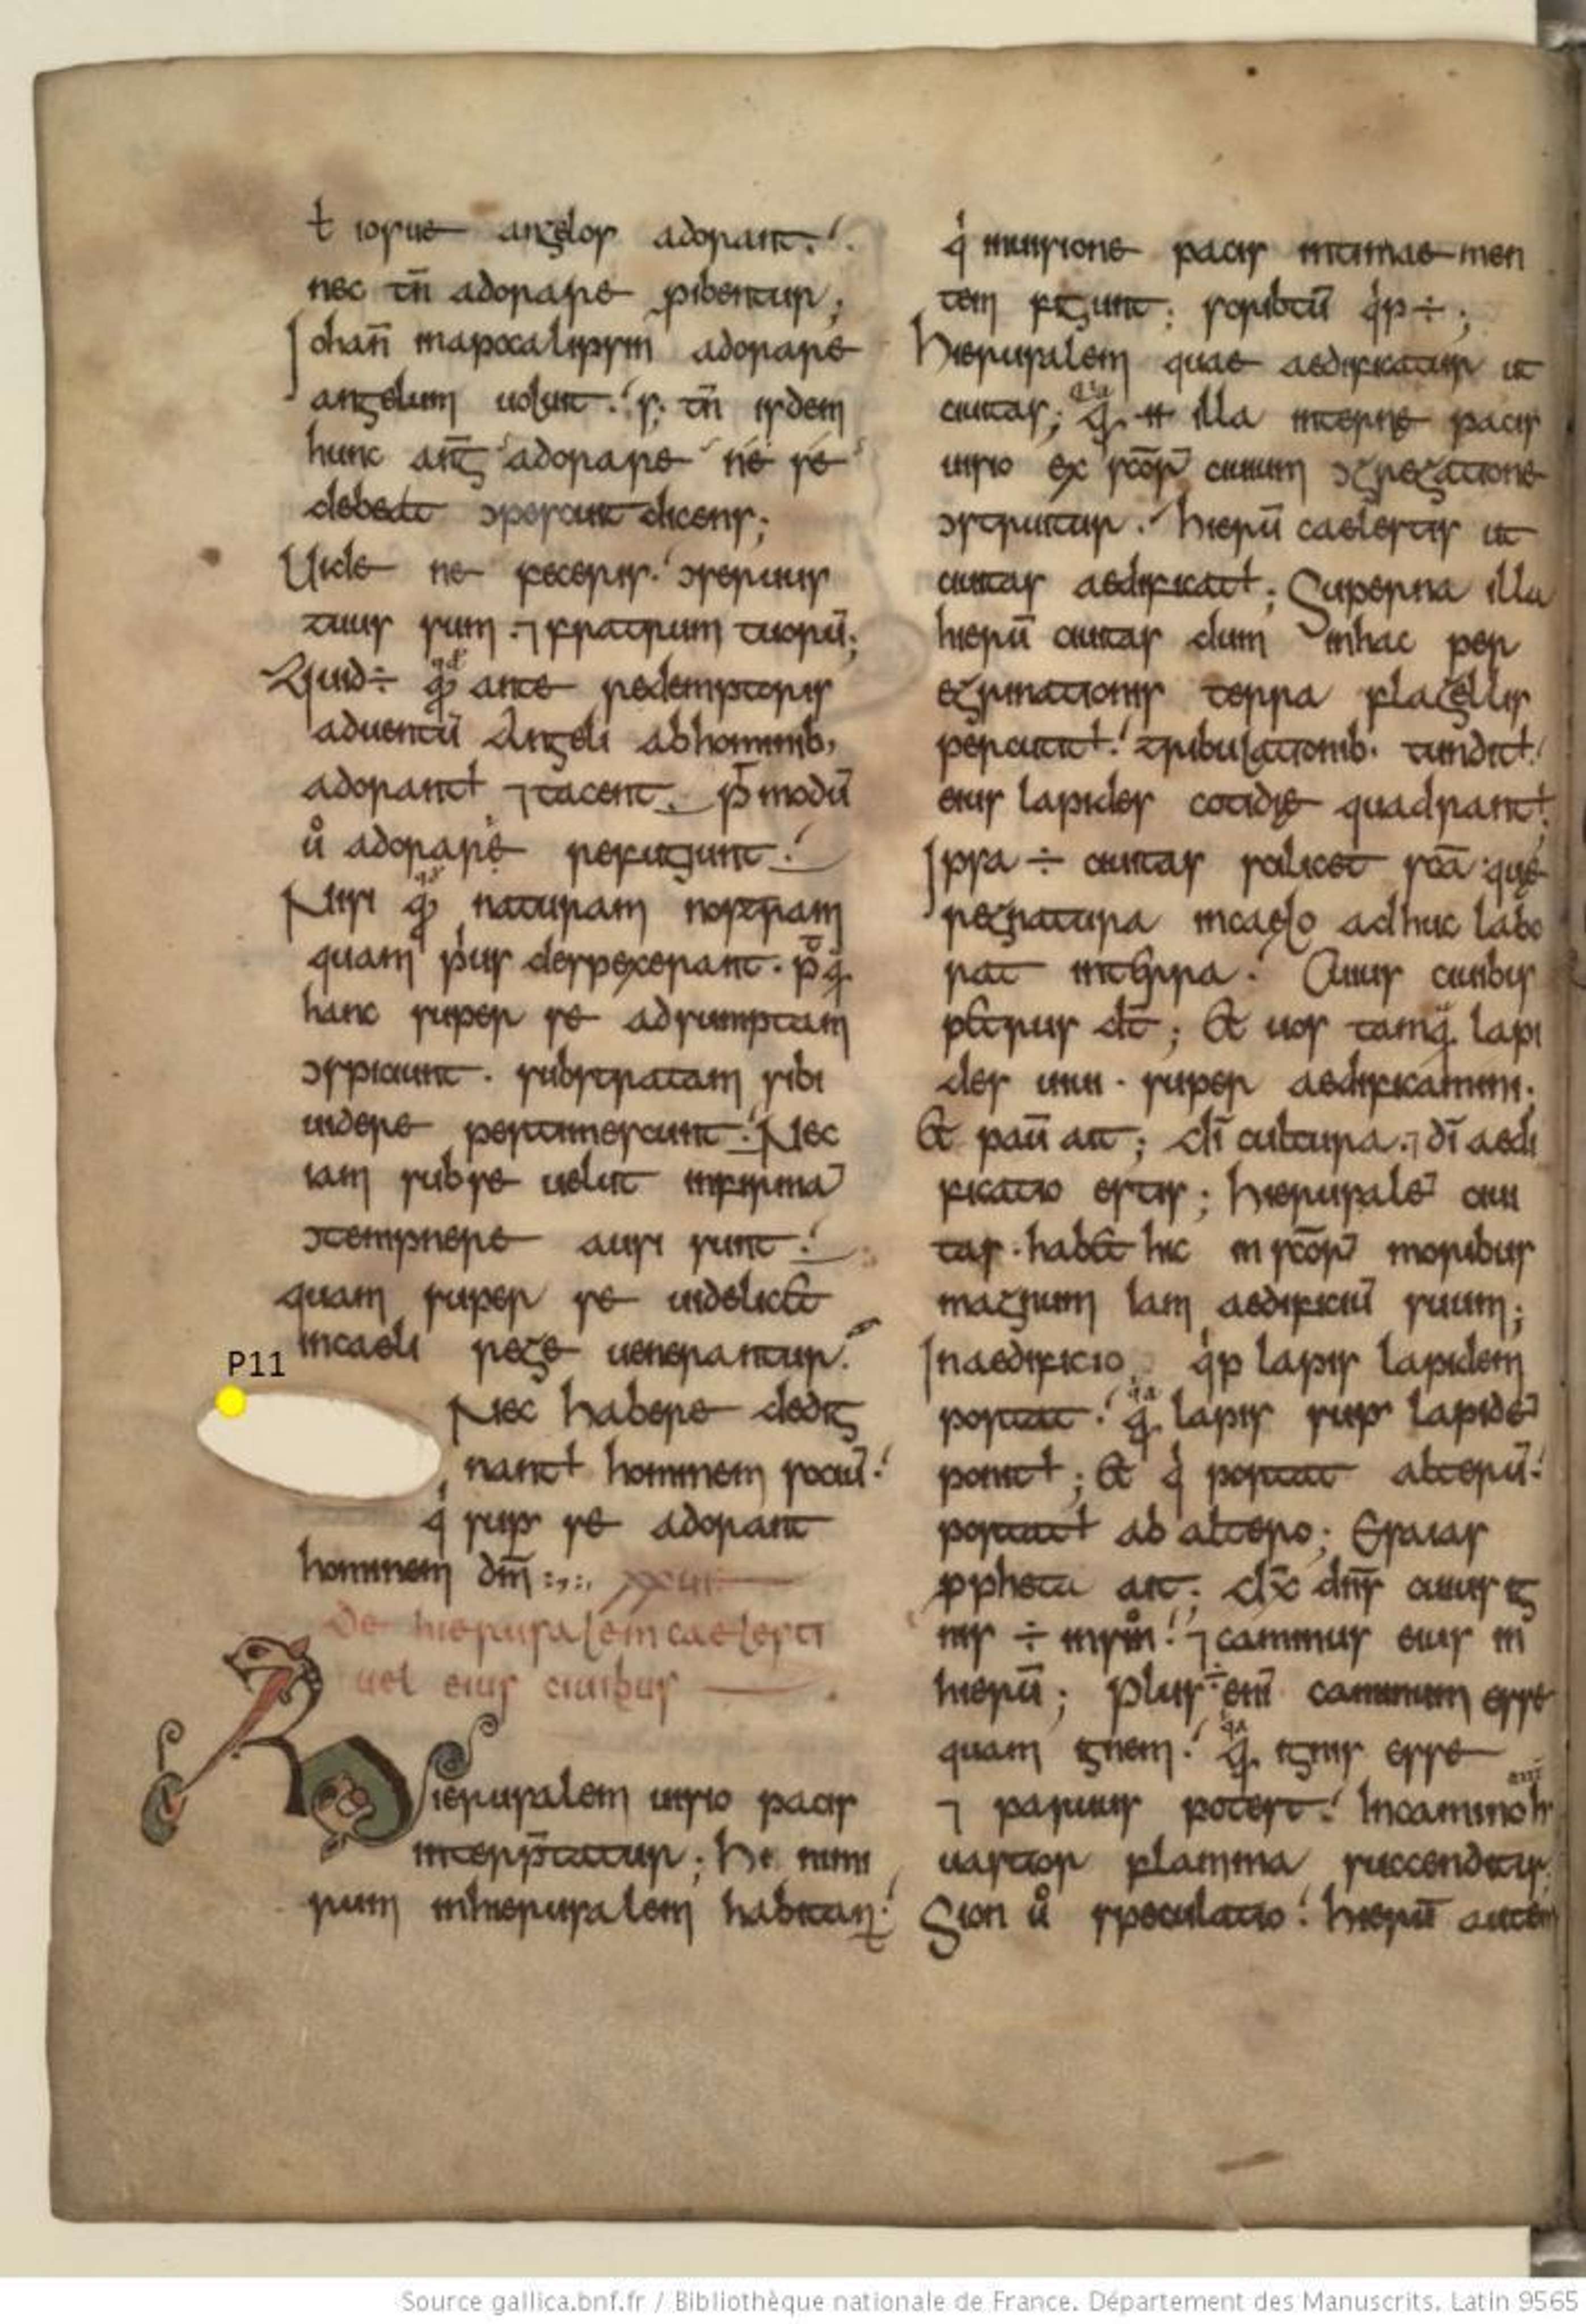 ł iosue angelos adorant.
nec tn̄ adorare ꝓibentur;
Iohan̄ inapocalipsin adorare
angelum uoluit. s; tn̄ isdem
hunc ang̅ adorare ne se
debeat ↄpescuit dicens;
Uide ne feceris. ↄseruus
tuus sum. ⁊ fratrum tuorū;
Quid ÷ qđ ante redemptoris
aduentū Angeli abhominib;
adorant ⁊tacent. p̄modū
u̾ adorare refugiunt.
Nisi qđ naturam nostram
quam p'us despexerant. p̄q
hanc super se adsumptam
ↄspiciunt. substratam sibi
uidere pertimescunt. Nec
iam subse uelut infirmā
ↄtempnere ausi sunt.
quam super se uidelicet
incaeli rege uenerantur.
P11
Nec habere dedig
nant̄ hominem sociū.
q' sup̄ se adorant
hominem dm̄
De hierusalem caelesti
uel eius ciuibus
Hierusalem uisio pacis
interp̄tatur; Hi nimi
rum inhierusalem habitan̄t
q' inuisione pacis intimae men
tem figunt; scribtū q'p ÷;
Hierusalem quae aedificatur ut
ciuitas; qa illa interne pacis
uisio ex sc̄or̄ ciuium ↄgregatione
ↄstruitur. hierū caelestis ut
ciuitas aedificat̄; Superna illa
hierū ciuitas dum inhac per
egrinationis terra flagellis
percutit̄. tribulationib. tundit̄.
eius lapides cotidie quadrant̄.
Ipsa ÷ ciuitas scilicet sc̄a que
regnatura incaelo adhuc labo
rat interra. Cuius ciuibus
petrus dt̄; Et uos tamq lapi
des uiui. super aedificamini.
Et paū ait; dī cultura. ⁊ dī aedi
ficatio estis; hierusalē ciui
tas. habet hic in sc̄or̄ moribus
magnum iam aedificiū suum;
Inaedificio q'p lapis lapidem
portat. qa lapis sup̄ lapidē
ponit̄; Et q' portat alterū.
portat̄ ab altero; Esaias
ꝓpheta ait; dx̄ dn̄s cuius ig
nis ÷ insion. ⁊ caminus eius in
hierū; Plus ÷ enī caminum esse
quam ignem. qa ignis esse
⁊ paruus potest. Incamino
uastior flamma succenditur
Sion u̾ speculatio. hierū autem
Source gallica.bnf.fr / Bibliothèque nationale de France. Département des Manuscrits. Latin 9565